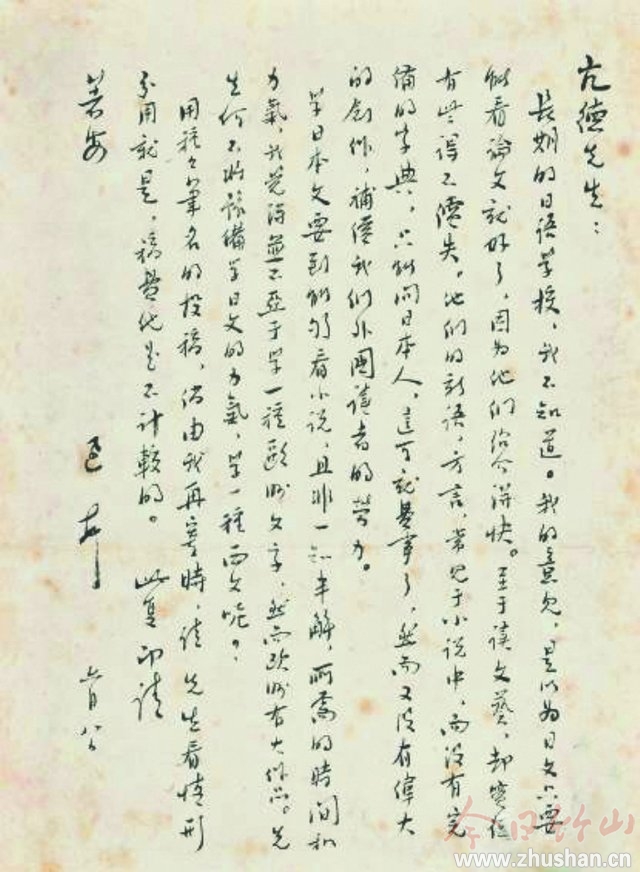 亢德先生：
长期的日语学校，我不知道。我的意见，是以为日文只要
能看论文就好了，因为他们绍介得快。至于读文艺，却实在
有些得不偿失。他们的新语，方言，常见于小说中，而没有完
备的字典，只能问日本人，这可就费事了，然而又没有伟大
的创作，补偿我们外国读者的劳力。
学日本文要到能够看小说，且非一知半解，所需的时间和
力气，我觉得並不亚于学一种欧洲文字，然而欧洲有大作品。先
生何不将豫備学日文的力气，学一种西文呢？
用种々筆名的投稿，倘由我再寄時，请 先生看情形
分用就是，稿费他是不计較的。 此复 即请
著安
迅 上 六月八日
今日竹山
www.zhushan.cn